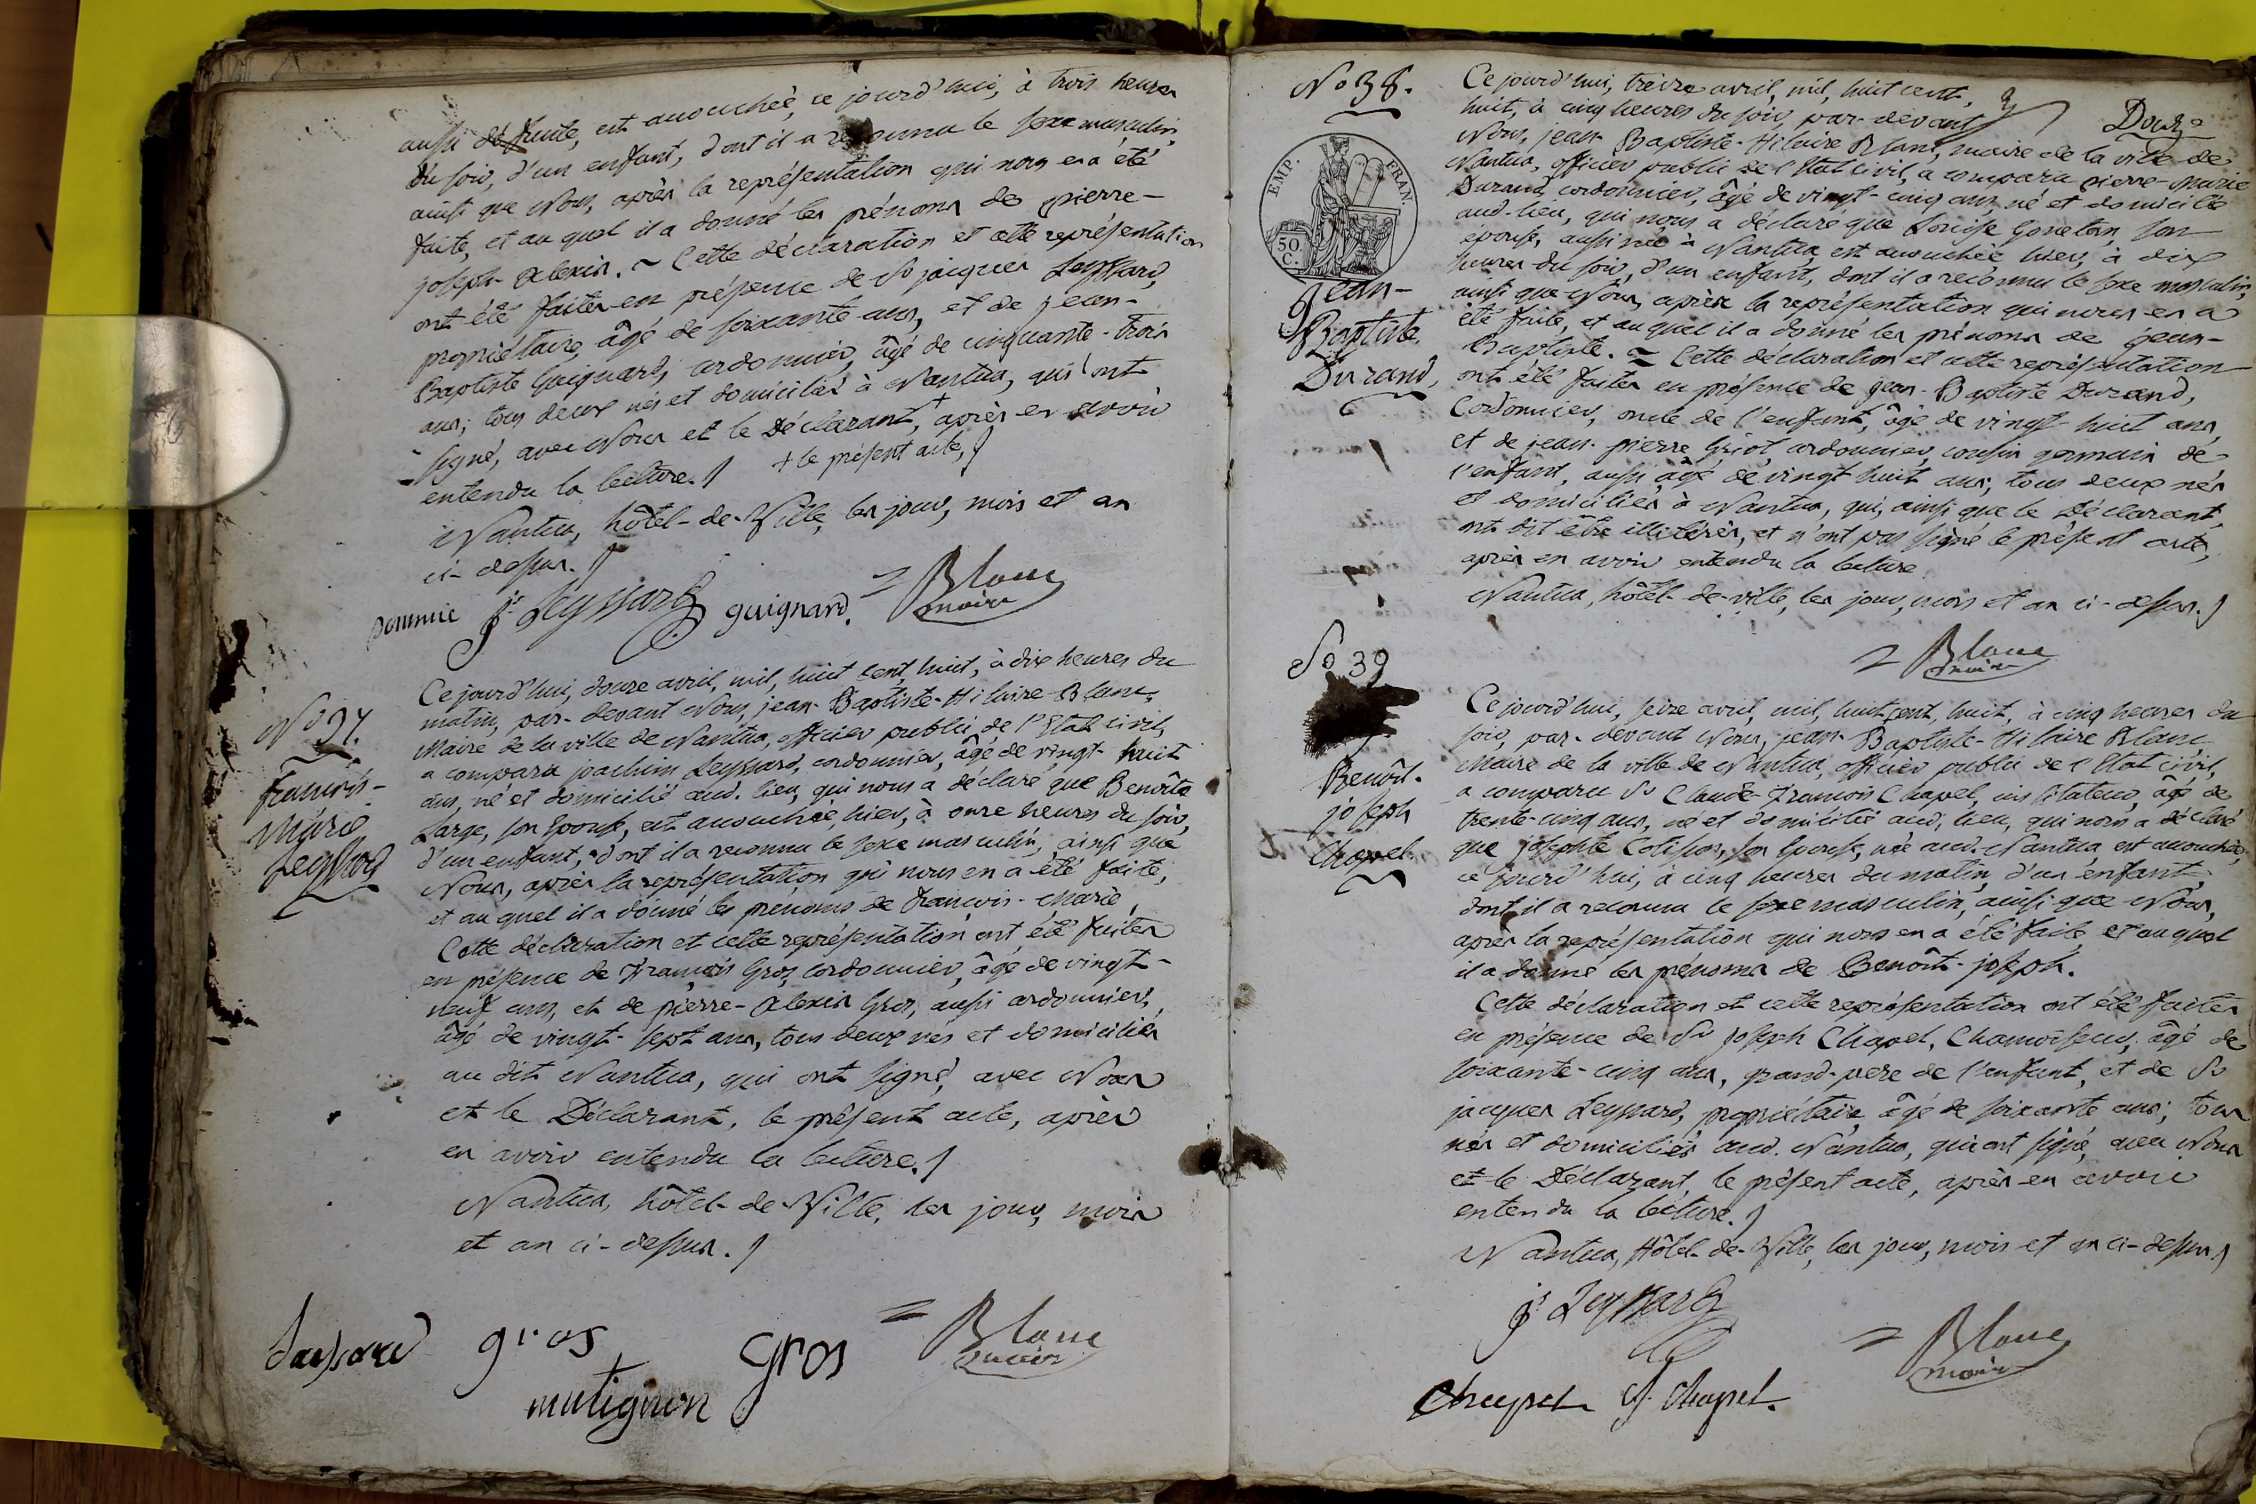 aussi de suite, est accouchée, ce jourd'hui, à trois heures
du soir, d'un enfant, dont il a reconnu le sexe masculin,
ainsi que Nous, après la représentation qui nous en a été
faite, et au quel il a donné les prénoms de pierre-
joseph-Alexis. ~ Cette déclaration et cette représentation
ont été faites en présence de Sr jacques Leyssard,
propriétaire, âgé de soixante ans, et de jean-
Baptiste Guignard, cordonnier, âgé de cinquante-trois
ans; tous deux nés et domiciliés à Nantua, qui ont
signé, avec Nous et le Déclarant + après en avoir
entendu la lecture. + le présent acte,
Nantua, hôtel-de-Ville, les jour, mois et an
ci-dessus.
Leyssard guignard. Blanc
maire
No 37.
françois-
Marie
Leyssard
Ce jourd'hui, douze avril, mil, huit cent, huit, à dix heures du
matin, par-devant Nous, jean-Baptiste-Hilaire-Blanc,
Maire de la ville de Nantua, officier public de l'Etat civil,
a comparu joachim Leyssard, cordonnier, âgé de vingt-huit
ans, né et domicilié aud. lieu, qui nous a déclaré que Benoîte
Large, son Epouse, est accouchée, hier, à onze heures du soir,
d'un enfant, dont il a reconnu le sexe masculin, ainsi que
Nous, après la représentation qui nous en a été faite,
et au quel il a donné les prénoms de françois-Marie,
Cette déclaration et cette représentation ont été faites
en présence de François Gros, cordonnier, âgé de vingt-
neuf ans, et de pierre-Alexis Gros, aussi cordonnier,
âgé de vingt-sept ans, tous deux nés et domiciliés
au dit Nantua, qui ont signé, avec Nous
et le Déclarant, le présent acte, après
en avoir entendu la lecture.
Nantua, hôtel-de-Ville, les jour, mois
et an ci-dessus.
gros gros Blanc
maire
mutignon
No 38.
EMP. FRAN.
50 C.
Jean-
Baptiste
Durand,
Ce jourd'hui, treize avril, mil, huit cent,
huit, à cinq heures du soir, par-devant
Nous, jean-Baptiste-Hilaire Blanc, maire de la ville de
Nantua, officier public de l'Etat civil, a comparu pierre-Marie
Durand, cordonnier, âgé de vingt-cinq ans, né et domicilié
aud. lieu, qui nous a déclaré que Louise son
épouse, aussi née à Nantua, est accouchée hier, à dix
heures du soir, d'un enfant, dont il a reconnu le sexe masculin,
ainsi que Nous, après la représentation qui nous en a
été faite, et au quel il a donné les prénoms de jean-
Baptiste. ~ Cette déclaration et cette représentation
ont été faites en présence de jean-Baptiste Durand,
Cordonnier, oncle de l'enfant, âgé de vingt-huit ans,
et de jean-pierre cordonnier, cousin germain de
l'enfant, aussi âgé de vingt huit ans, tous deux nés
et domiciliés à Nantua, qui, ainsi que le Déclarant,
ont dit être illitérés, et n'ont pas signé le présent acte,
après en avoir entendu la lecture
Nantua, hôtel-de-ville, les jour, mois et an ci-dessus.
Blanc
maire
No 39
Benoît-
joseph
Chapel.
Ce jourd'hui, seize avril, mil, huit cent, huit, à cinq heures du
soir, par-devant Nous, jean-Baptiste-Hilaire Blanc
Maire de la ville de Nantua, officier public de l'Etat civil,
a comparu Sr Claude-François Chapel, instituteur, âgé de
trente-cinq ans, né et domicilié aud. lieu, qui nous a déclaré
que josephte son Epouse, née aud. Nantua, est accouchée,
ce jourd'hui, à cinq heures du matin, d'un enfant,
dont il a reconnu le sexe masculin, ainsi que Nous,
après la représentation qui nous en a été faite, et au quel
il a donné les prénoms de Benôit-joseph.
Cette déclaration et cette représentation ont été faites
en présence de Sr joseph Chapel, Chamoiseur, âgé de
soixante-cinq ans, grand-père de l'enfant, et de Sr
jacques Leyssard, propriétaire, âgé de soixante ans; tous
nés et domiciliés aud. Nantua, qui ont signé, avec Nous
et le Déclarant, le présent acte, après en avoir
entendu la lecture.
Nantua, Hôtel-de-Ville, les jour, mois et an ci-dessus
Leyssard
Blanc
maire
Chapel Chapel.